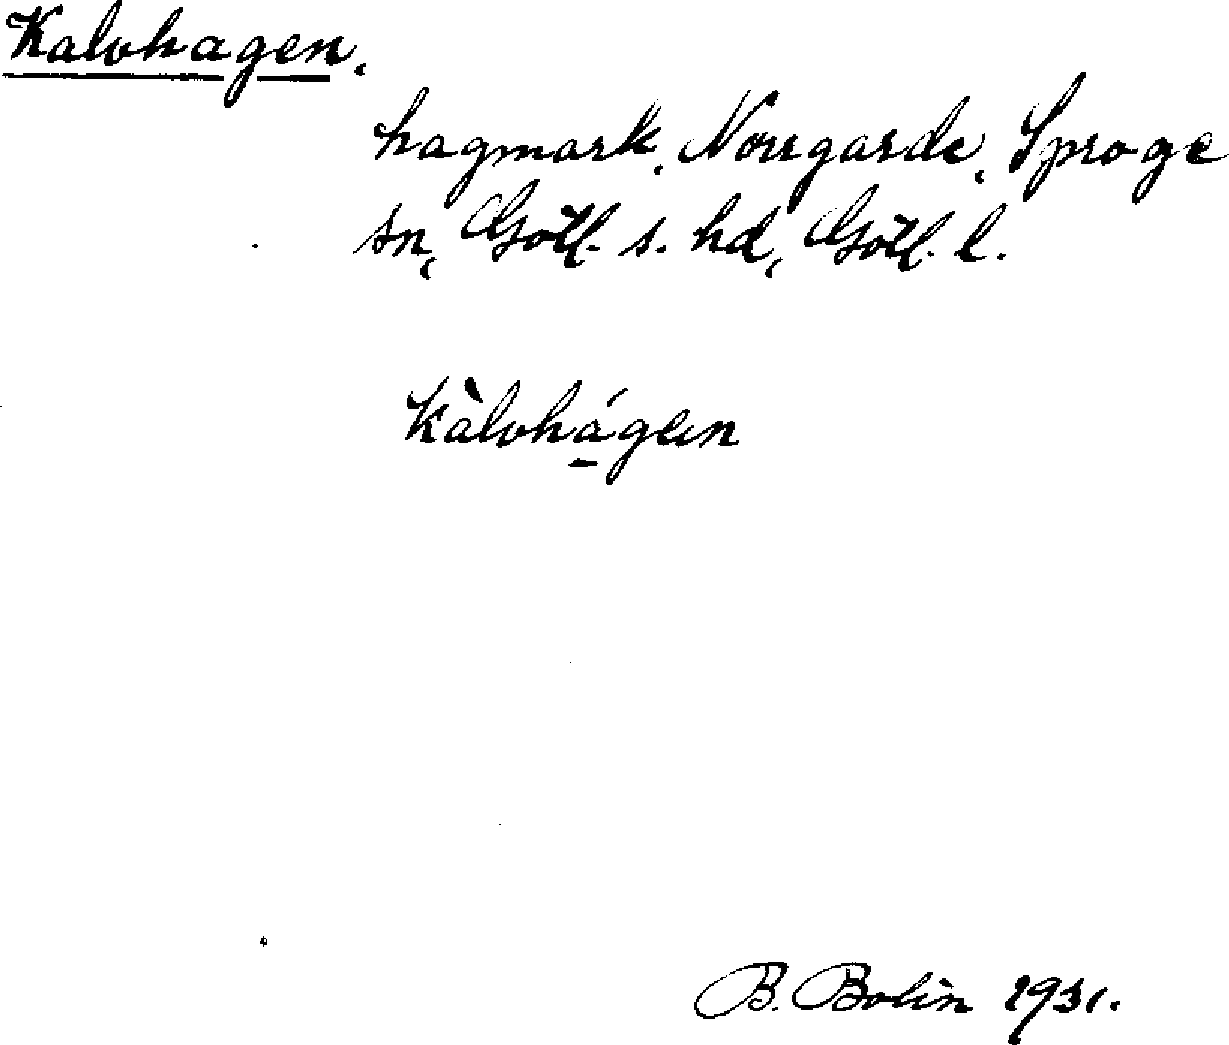 Kalvhagen.
hagmark, Norrgarde, Sproge
sn, Gotl. s. hd, Gotl. l.
kàlvhágen
B. Bolin 1931.